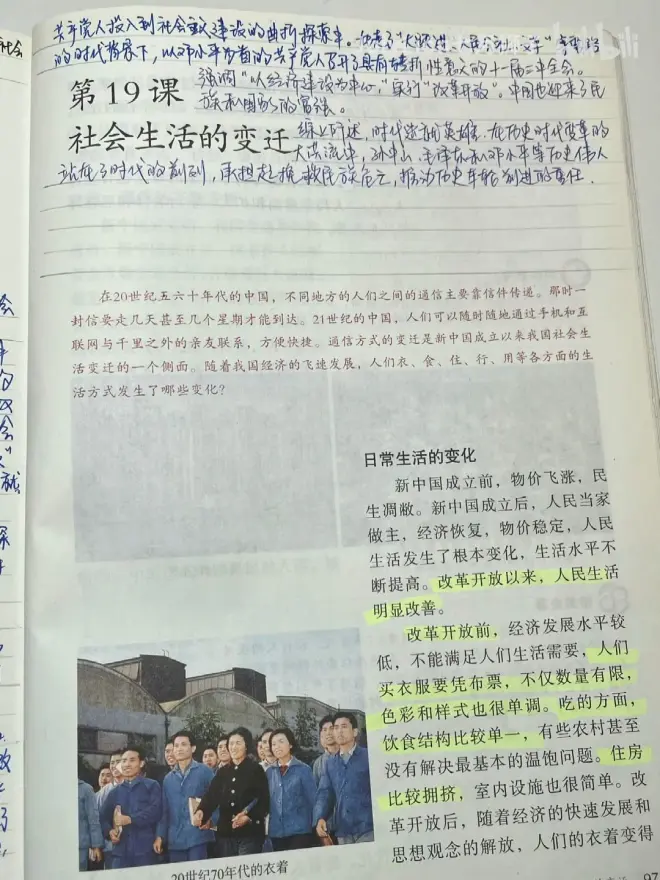 共产党人投入到社会主义建设的曲折探索中。
的时代背景下，以邓小平为首的共产党人召开了具有转折性意义的十一届三中全会。
强调"以经济建设为中心"，实行"改革开放"。中国也迎来了民
族和国家的富强。
第19课
综上所述，时代造就英雄，在历史时代变革的
社会生活的变迁
大洪流中，孙中山、毛泽东和邓小平等历史伟人
站在了时代的前列，承担起挽救民族危亡，推动历史车轮前进的责任.
在20世纪五六十年代的中国，不同地方的人们之间的通信主要靠信件传递。那时一
封信要走几天甚至几个星期才能到达。21世纪的中国，人们可以随时随地通过手机和互
联网与千里之外的亲友联系，方便快捷。通信方式的变迁是新中国成立以来我国社会生
活变迁的一个侧面。随着我国经济的飞速发展，人们衣、食、住、行、用等各方面的生
活方式发生了哪些变化？
日常生活的变化
新中国成立前，物价飞涨，民
生凋敝。新中国成立后，人民当家
做主，经济恢复，物价稳定，人民
生活发生了根本变化，生活水平不
断提高。改革开放以来，人民生活
明显改善。
改革开放前，经济发展水平较
低，不能满足人们生活需要，人们
买衣服要凭布票，不仅数量有限，
色彩和样式也很单调。吃的方面，
饮食结构比较单一，有些农村甚至
没有解决最基本的温饱问题。住房
比较拥挤，室内设施也很简单。改
革开放后，随着经济的快速发展和
思想观念的解放，人们的衣着变得
20世纪70年代的衣着
97